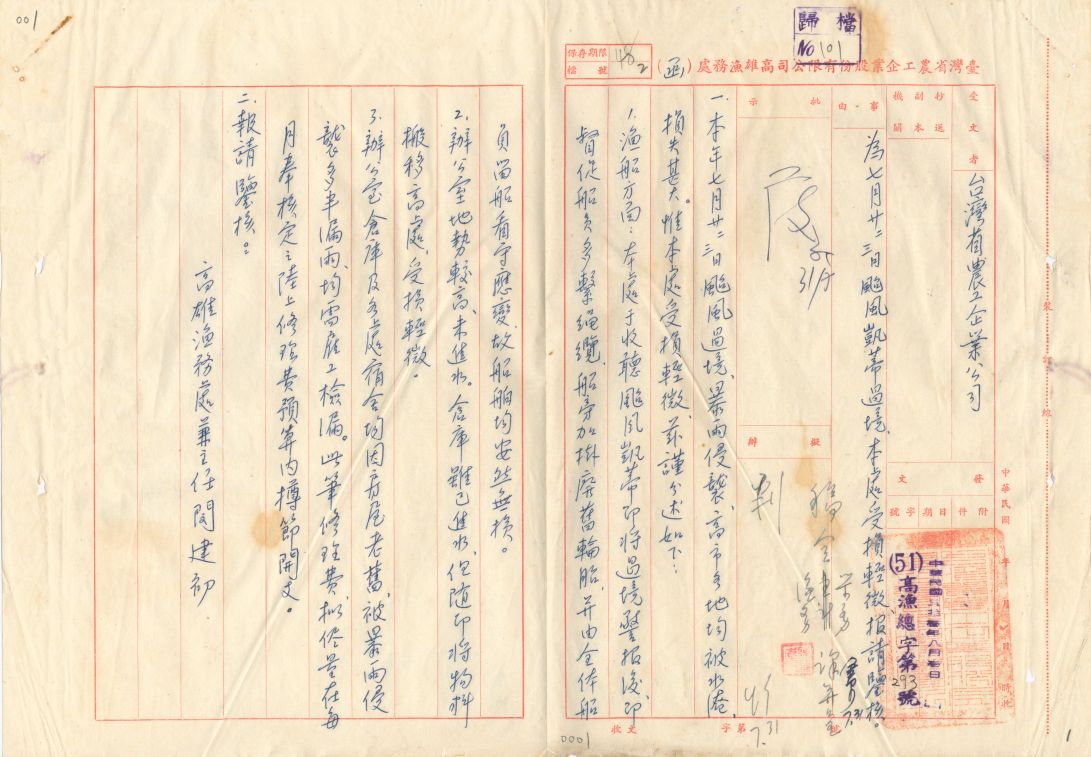 001
歸檔
No 101
保存期限
檔號
2
臺灣省農工企業股份有限公司高雄漁務處(函)
受文者
台灣省農工企業公司
抄送副本機關
事由
為七月廿二、三日颱風凱蒂過境、本處受損輕微、報請鑒核。
發文
附件
日期
字號
中華民國
年
月
日
時
(51)高漁總字第293號
批示
擬辦
31/7
7.31
一、本年七月廿二、三日颱風過境、暴雨侵襲、高市各地均被水淹、
損失甚大。惟本處受損輕微、茲謹分述如下:
1.漁船方面:本處于收聽颱風凱蒂即將過境警報後、即
督促船員多繫繩纜、船旁加掛廢舊輪胎、并由全体船
員留船看守應變、故船舶均安然無損。
2.辦公室地勢較高、未進水。倉庫雖已進水、但隨即將物料
搬移高處、受損輕微。
3.辦公室倉庫及各處宿舍均因房屋老舊、被暴雨侵
襲多半漏雨、均需雇工檢漏。此筆修理費、擬儘量在每
月奉核定之陸上修理費預算內撙節開支。
二、報請鑒核。
高雄漁務處兼主任閔建初
裝
線
收文
字第
號
7.31
0001
1